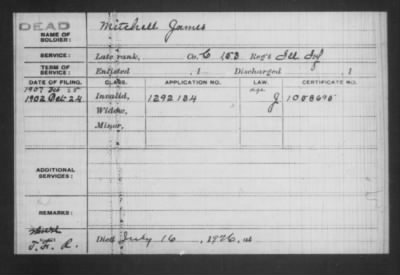 DEAD
NAME OF SOLDIER: Mitchell James
SERVICE: Late rank, Co. C 153 Reg't Ill Inf
TERM OF SERVICE: Enlisted , 1 Discharged , 1
DATE OF FILING. CLASS. APPLICATION NO. LAW. CERTIFICATE NO.
1907
1902 Oct 24 Invalid, 1292134 J 1058695
Widow,
Minor,
ADDITIONAL SERVICES:
REMARKS:
T. H. R. Died July 16 , 1926, at